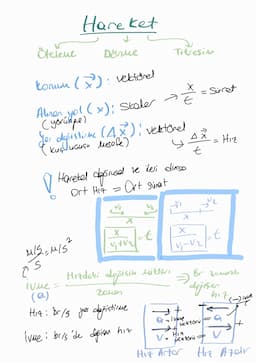 Hareket
Öteleme Dönme Titreşim
Konum (x⃗): Vektörel
Alınan yol (x): Skaler → x/t = Sürat
(yörünge)
Yer değiştirme (Δx⃗): vektörel → Δx⃗/t = Hız
(kuş uçuşu mesafe)
! Hareket doğrusal ve ileri dinse
Ort Hız = Ort sürat
V₁ V₂
x
x/(V₁+V₂) = t
V₁ V₂
x
x/(V₁-V₂) = t
m/s/s = m/s²
ivme = Hızdaki değişim miktarı / zaman → Br zamanda değişen hız
(a)
Hız: Br/s yer değiştirme
ivme: br/s de değişen hız
Hız Artar Hız Azalır